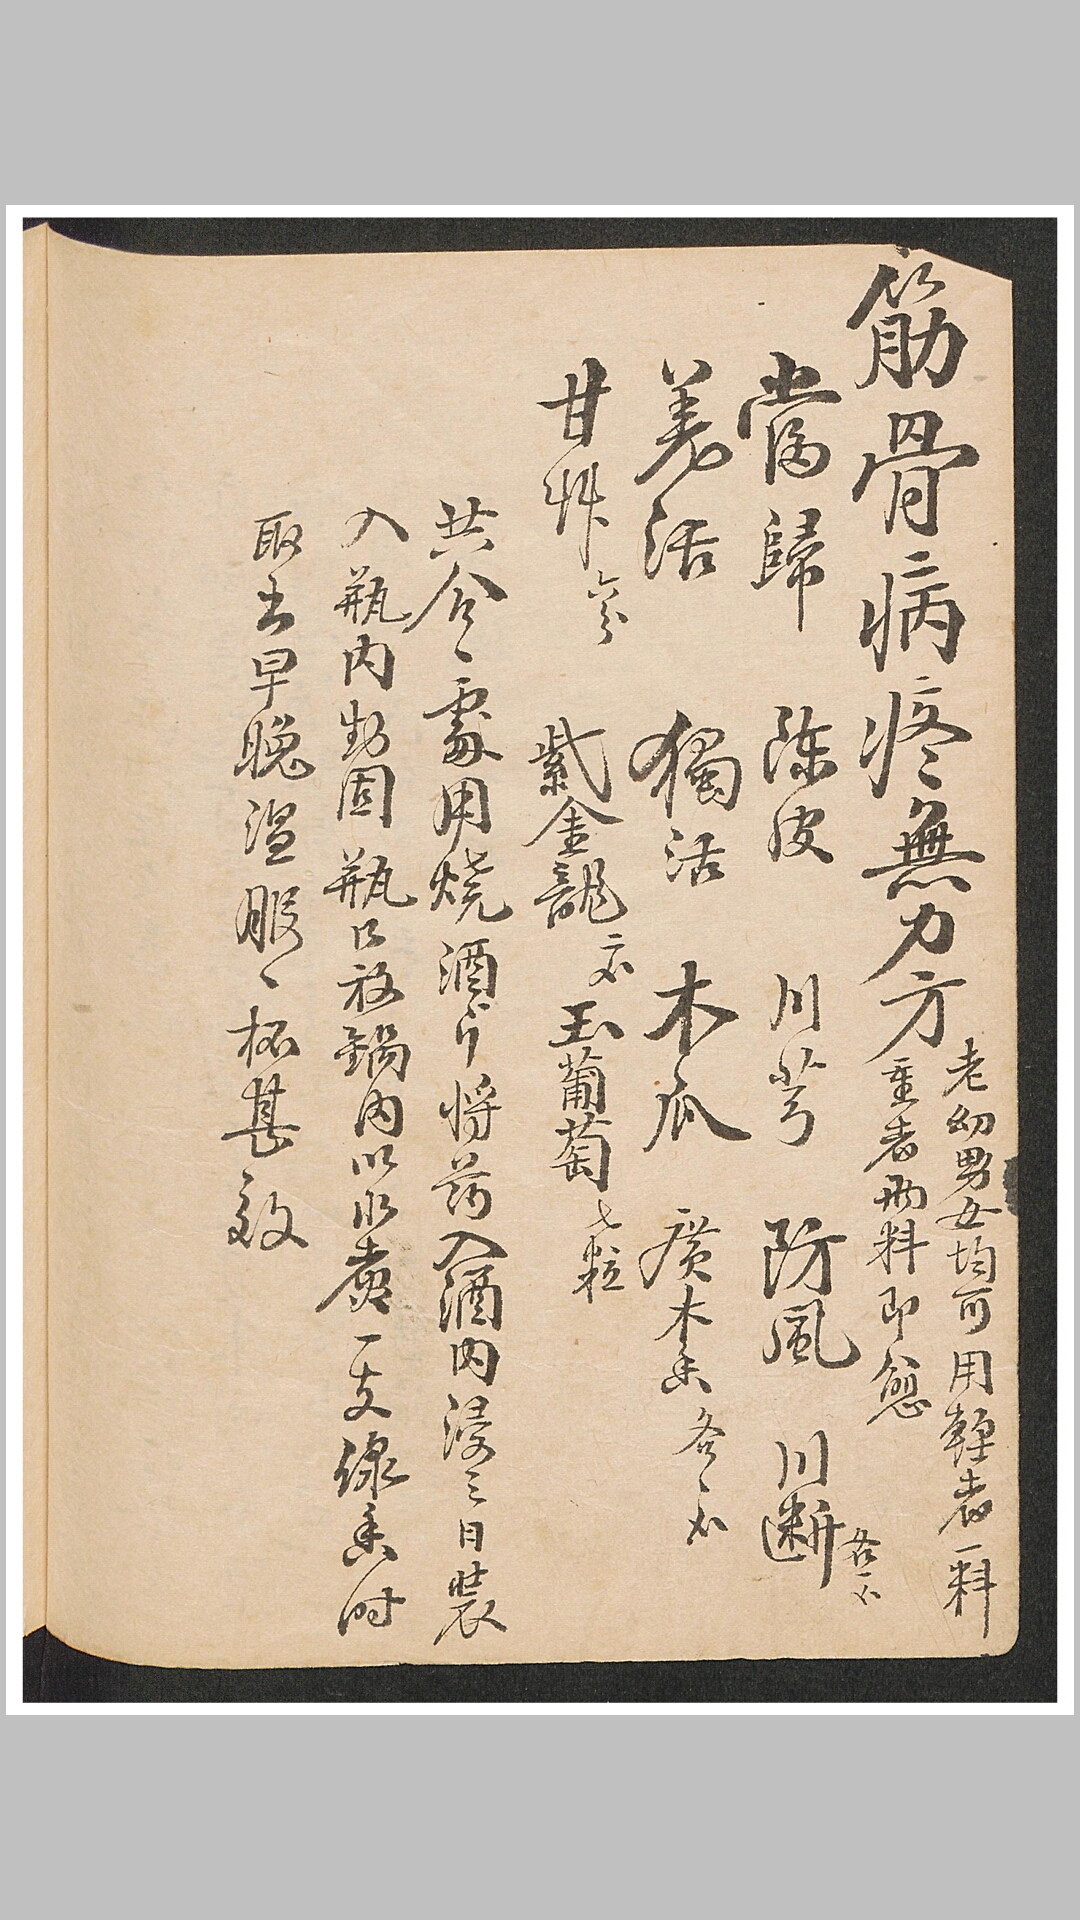 筋骨病疼無力方
老幼男女均可用輕者一料
重者兩料即愈
當歸 陳皮 川芎 防風 川断 各一
羌活 獨活 木瓜 廣木香 各一
甘艸 紫金龍 玉葡萄 七粒
共合一處用燒酒 將药入酒内浸三日装
入瓶内 固瓶口放鍋内以水煮一支線香时
取出早晚温服一杯甚效